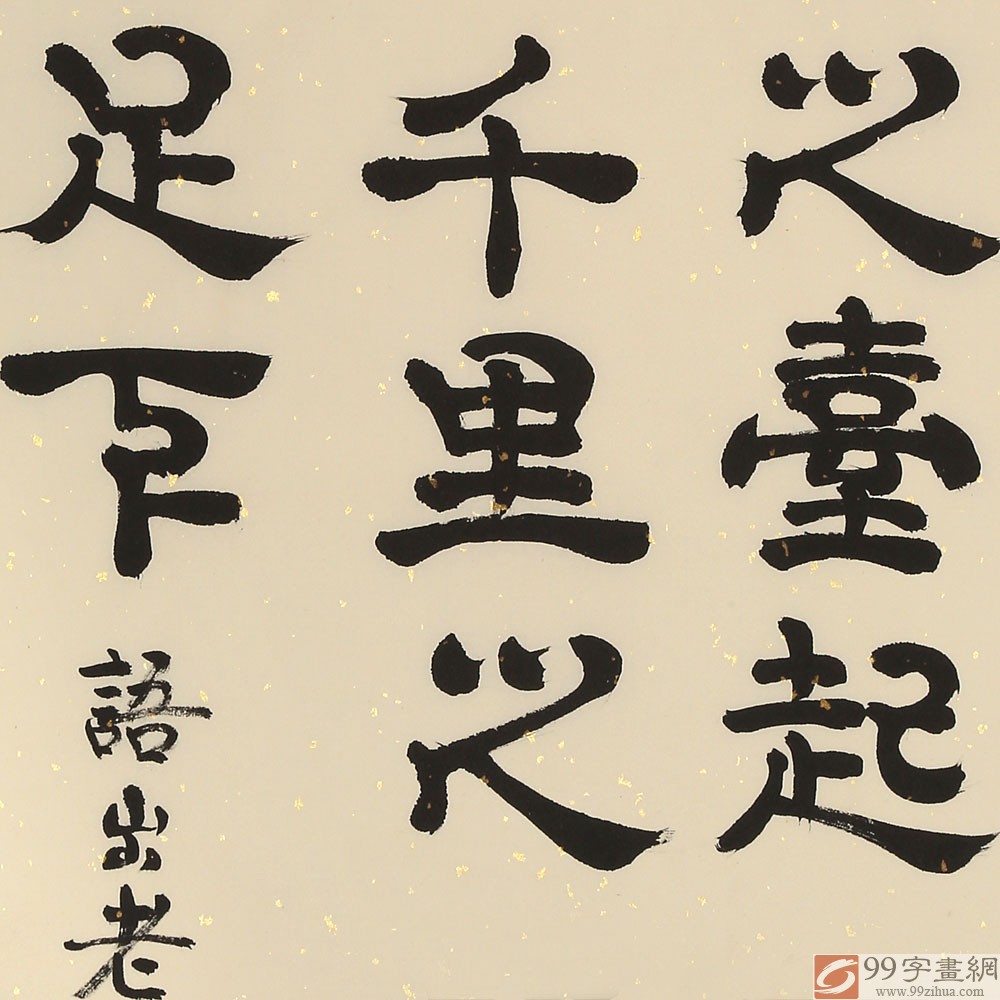 之臺起
千里之
足下
語出老
99字畫網
www.99zihua.com